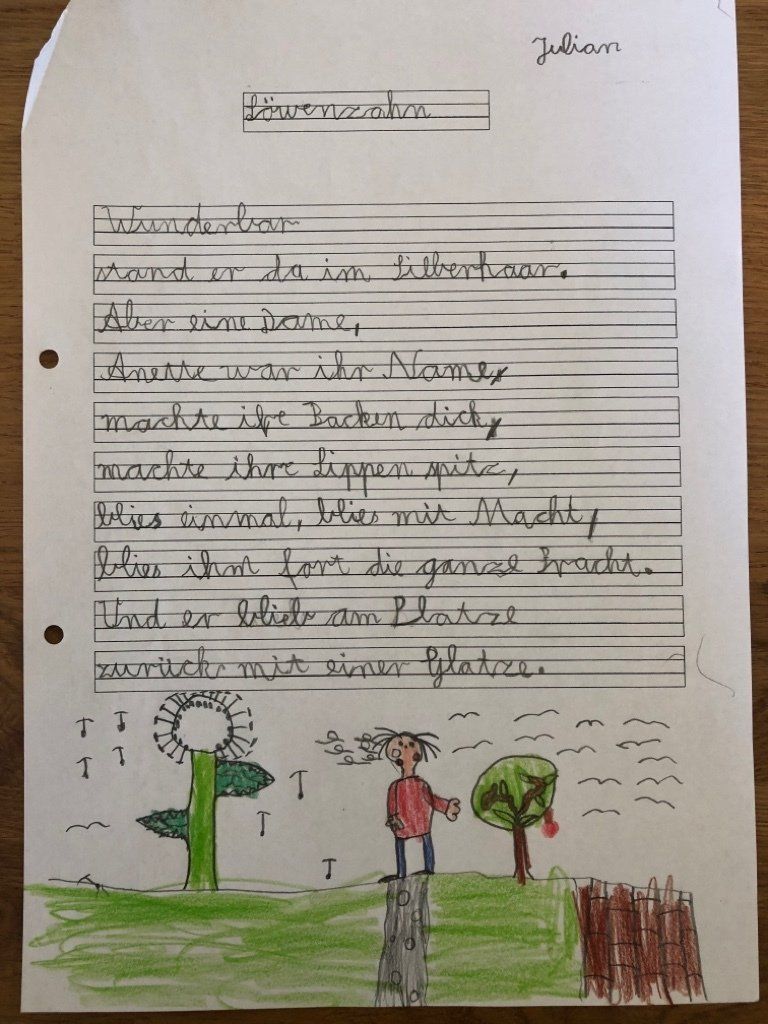 Julian
Löwenzahn
Wunderbar
stand er da im Silberhaar.
Aber eine Dame,
Anette war ihr Name,
machte ihre Backen dick,
machte ihre Lippen spitz,
blies einmal, blies mit Macht,
blies ihm fort die ganze Pracht.
Und er blieb am Platze
zurück mit einer Glatze.